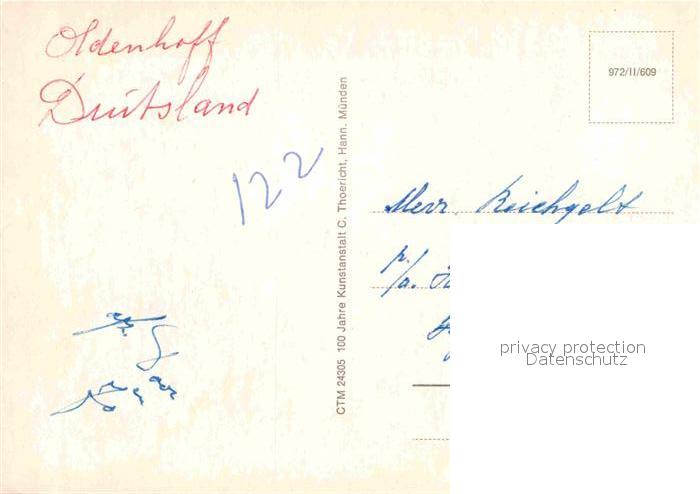 Oldenhoff
Duitsland
122
CTM 24305 100 Jahre Kunstanstalt C. Thoericht, Hann. Münden
972/II/609
Herr. Reichgelt
p/a.
privacy protection
Datenschutz